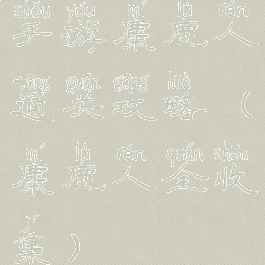 shǒu yóu mí lù rén
手游麋鹿人
tōng guān gōng lüè
通关攻略（
mí lù rén quán shōu
麋鹿人全收
jí
集）